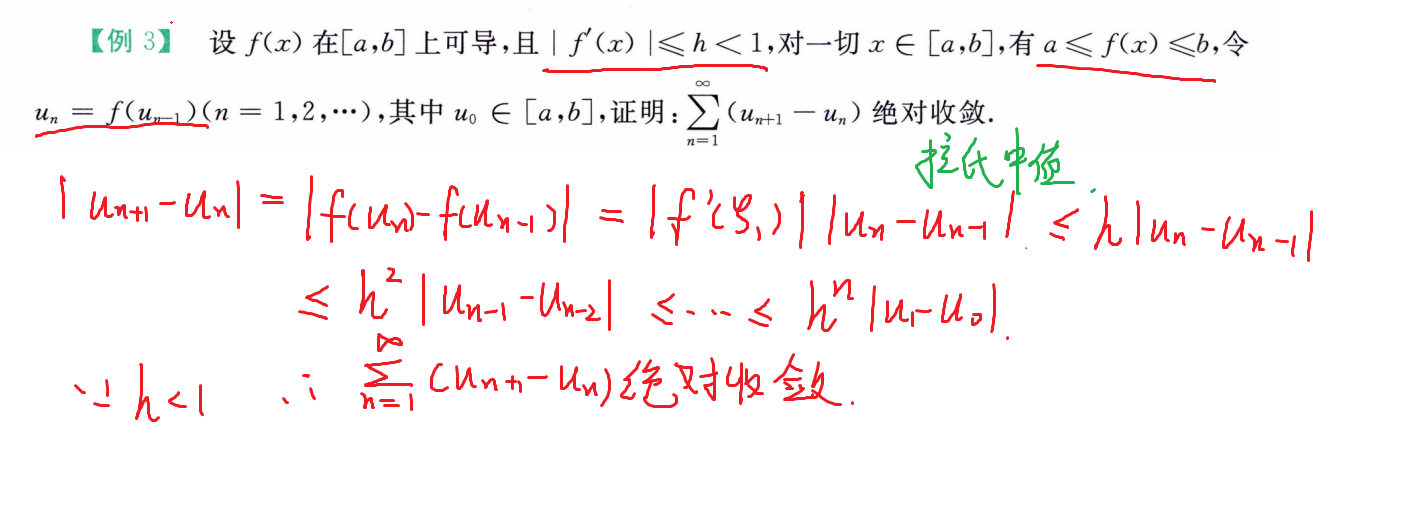 【例 3】 设 f(x) 在[a,b] 上可导,且 | f′(x) |≤ h < 1,对一切 x ∈ [a,b],有 a ≤ f(x) ≤b,令
uₙ = f(uₙ₋₁)(n = 1,2,⋯),其中 u₀ ∈ [a,b],证明:∑_{n=1}^{∞}(uₙ₊₁ − uₙ) 绝对收敛.
拉氏中值
|uₙ₊₁-uₙ| = |f(uₙ)-f(uₙ₋₁)| = |f′(ξ₁)| |uₙ-uₙ₋₁| ≤ h|uₙ-uₙ₋₁|
≤ h²|uₙ₋₁-uₙ₋₂| ≤⋯≤ hⁿ|u₁-u₀|.
∵ h<1 ∴ ∑_{n=1}^{∞}(uₙ₊₁-uₙ)绝对收敛.